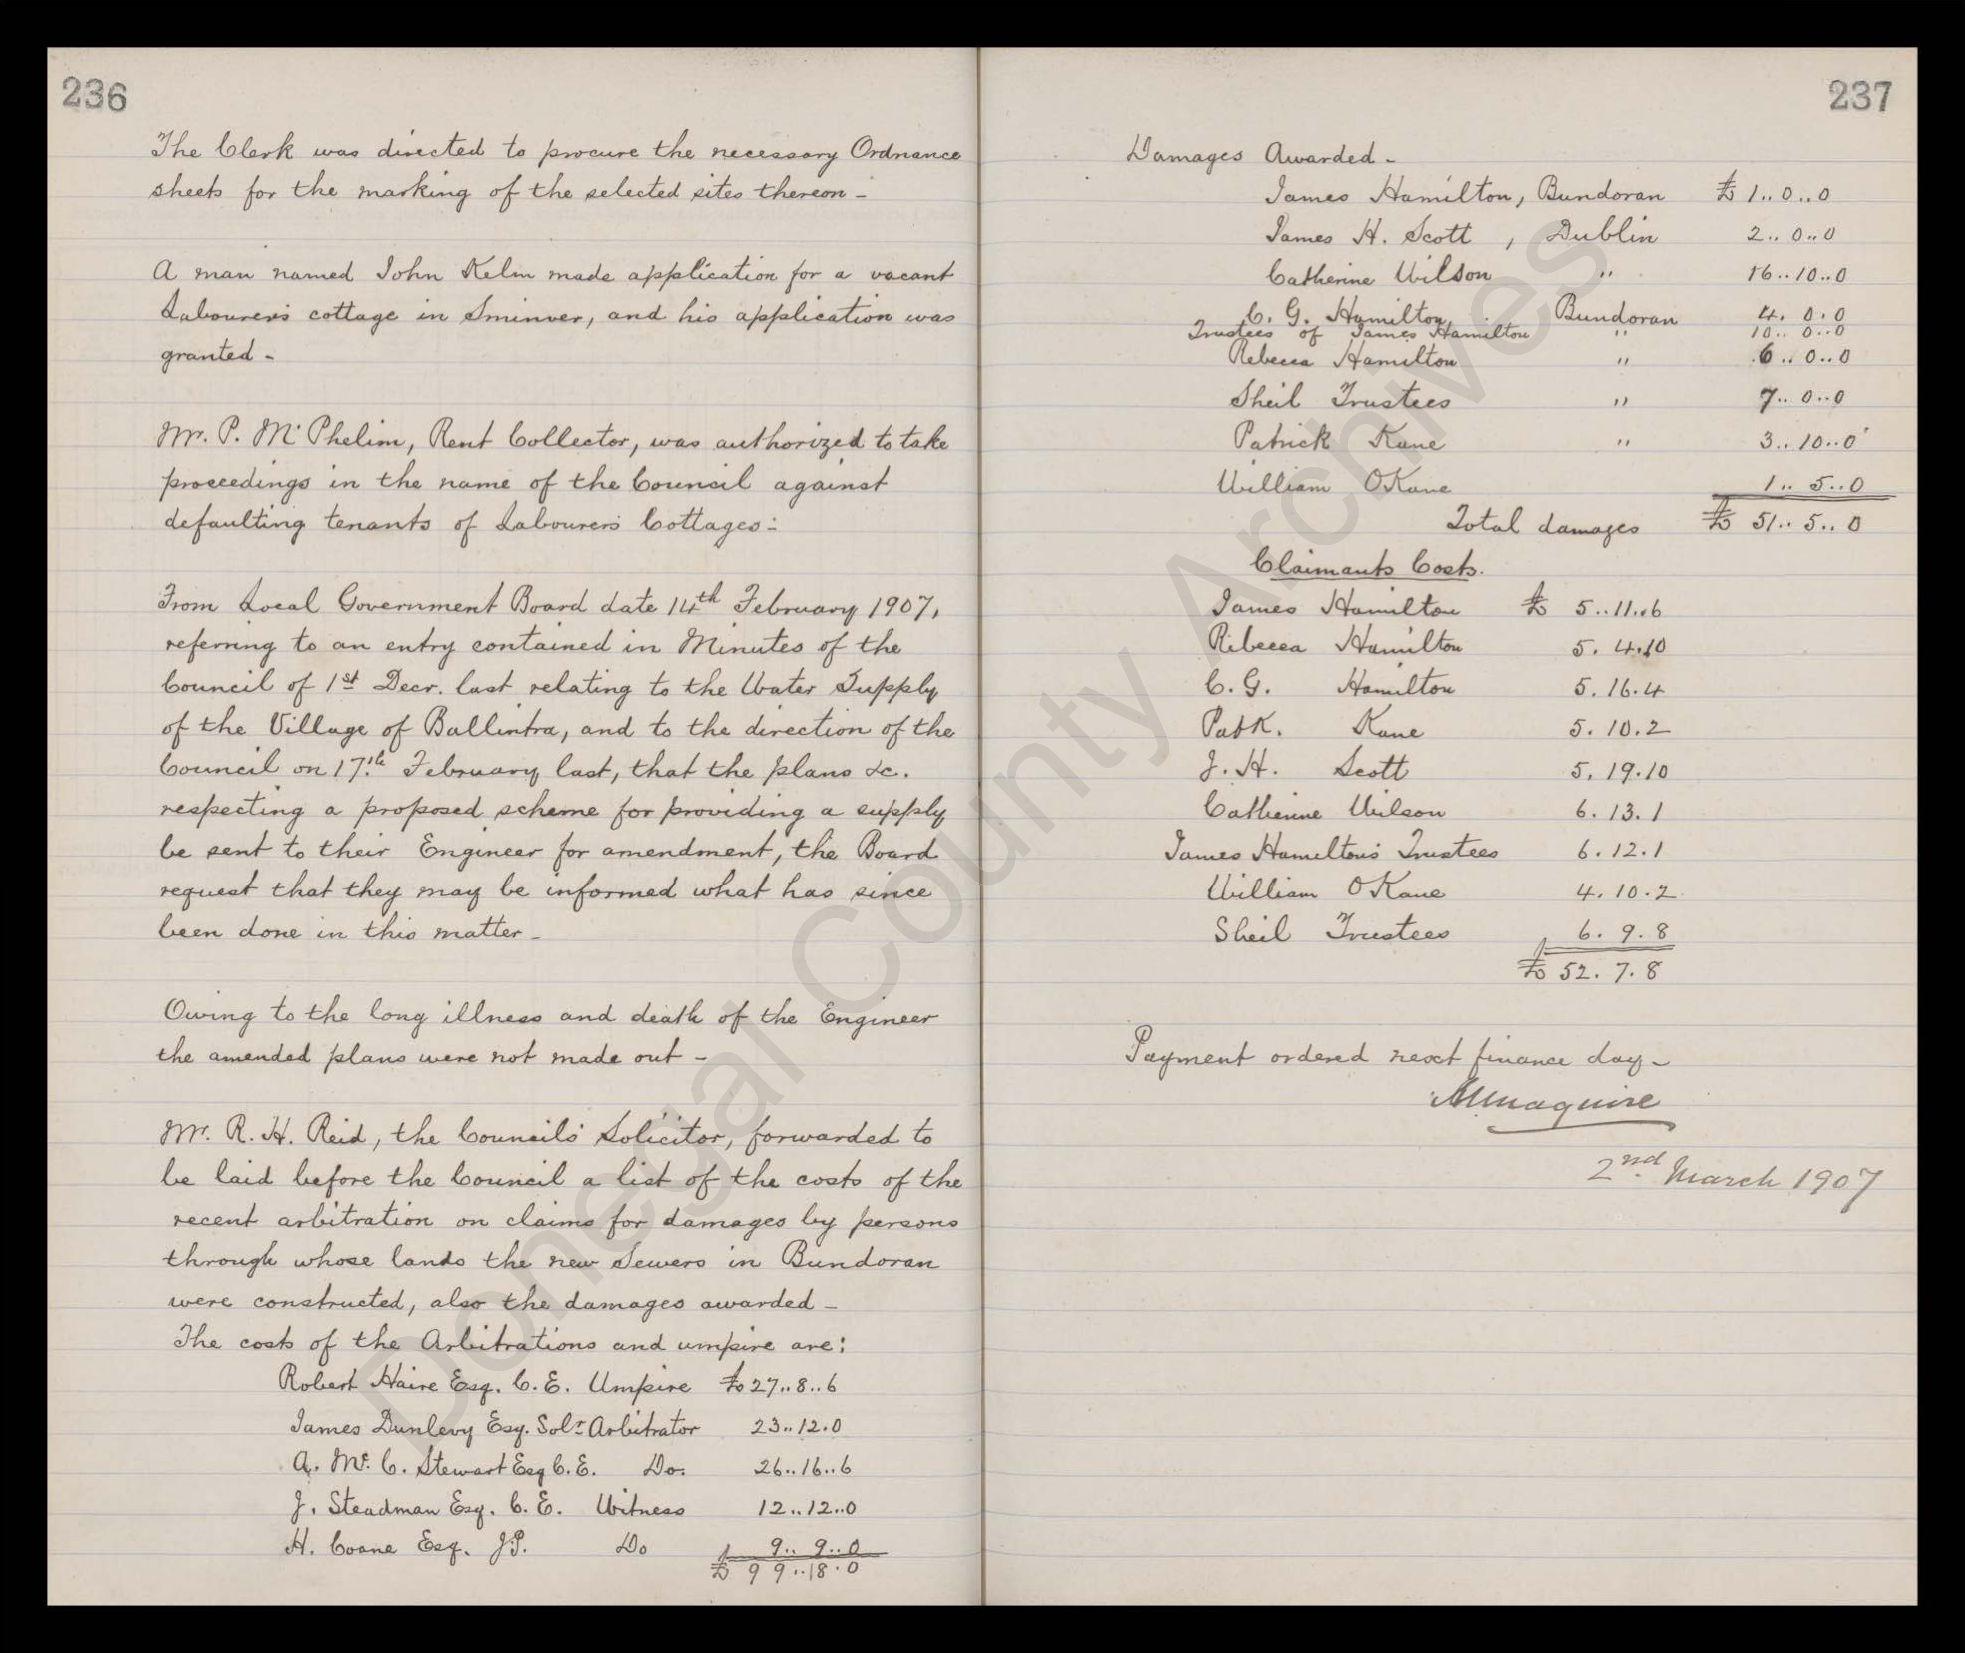 236
The Clerk was directed to procure the necessary Ordnance
sheets for the marking of the selected sites thereon -
A man named John Kelm made application for a vacant
Labourers cottage in Sminver, and his application was
granted -
Mr. P. McPhelim, Rent Collector, was authorized to take
proceedings in the name of the Council against
defaulting tenants of Labourers Cottages:
From Local Government Board date 14th February 1907,
referring to an entry contained in Minutes of the
Council of 1st Decr. last relating to the Water Supply
of the Village of Ballintra, and to the direction of the
Council on 17th February last, that the plans &c.
respecting a proposed scheme for providing a supply
be sent to their Engineer for amendment, the Board
request that they may be informed what has since
been done in this matter -
Owing to the long illness and death of the Engineer
the amended plans were not made out -
Mr. R. H. Reid, the Councils' Solicitor, forwarded to
be laid before the Council a list of the costs of the
recent arbitration on claims for damages by persons
through whose lands the new Sewers in Bundoran
were constructed, also the damages awarded -
The costs of the Arbitrations and umpire are:
Robert Haire Esq. C.E. Umpire £27..8..6
James Dunlevy Esq. Solr Arbitrator 23..12.0
A. Mc. C. Stewart Esq C.E. Do. 26..16..6
J. Steadman Esq. C.E. Witness 12..12..0
H. Coane Esq. J.P. Do 9.. 9..0
£ 99..18.0
237
Damages Awarded -
James Hamilton, Bundoran £ 1..0..0
James H. Scott , Dublin 2..0..0
Catherine Wilson " 16..10..0
C. G. Hamilton Bundoran 4. 0.0
Trustees of James Hamilton " 10.. 0..0
Rebecca Hamilton " 6.. 0..0
Sheil Trustees " 7.. 0..0
Patrick Kane " 3..10..0
William OKane 1.. 5..0
Total damages £ 51.. 5.. 0
Claimants Costs.
James Hamilton £ 5..11..6
Ribecca Hamilton 5. 4.10
C.G. Hamilton 5.16.4
Patk. Kane 5.10.2
J.H. Scott 5.19.10
Catherine Wilson 6.13.1
James Hamilton's Trustees 6.12.1
William OKane 4.10.2
Sheil Trustees 6. 9.8
£ 52. 7.8
Payment ordered next finance day -
Maguire
2nd March 1907
Donegal County Archives